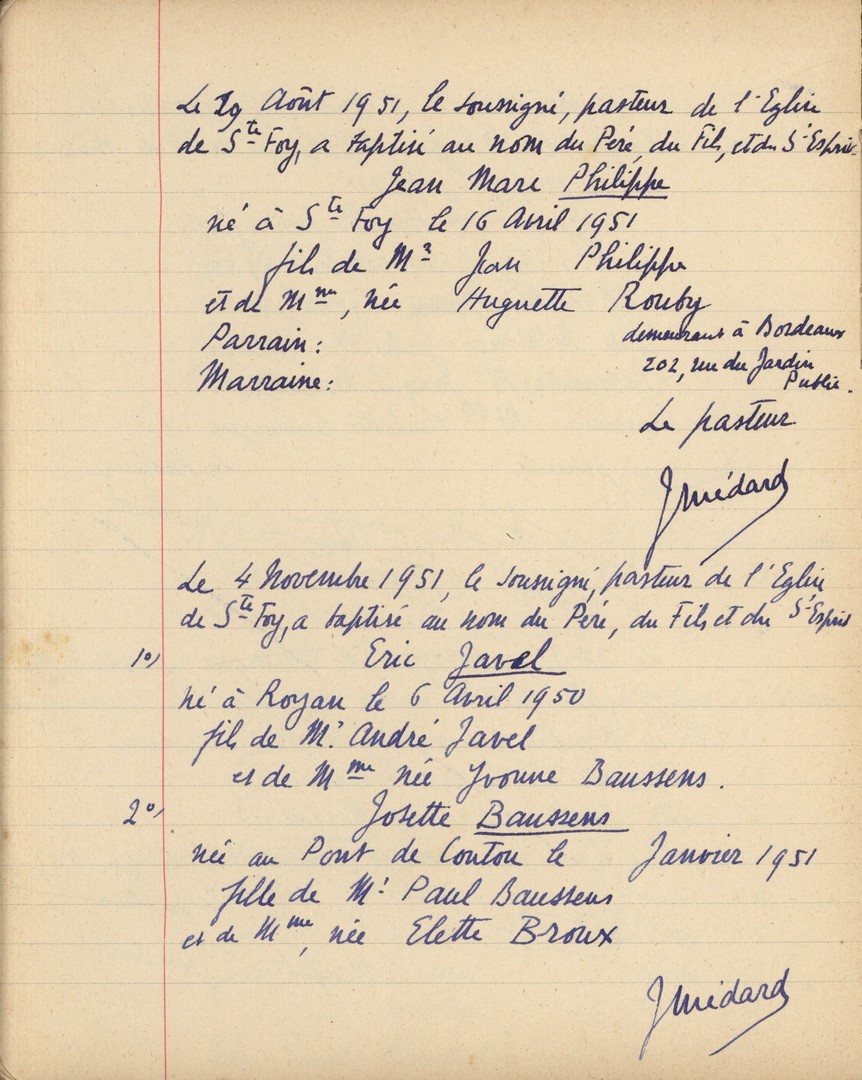 Le 29 Août 1951, le soussigné, pasteur de l'Eglise
de Ste Foy, a baptisé au nom du Père, du Fils, et du St Esprit
Jean Marc Philippe
né à Ste Foy le 16 Avril 1951
fils de Mr Jean Philippe
et de Mme, née Huguette Rouby
demeurant à Bordeaux
Parrain:
202, rue du Jardin
Marraine:
Public.
Le pasteur
J Médard
Le 4 Novembre 1951, le soussigné, pasteur de l'Eglise
de Ste Foy, a baptisé au nom du Père, du Fils et du St Esprit
1°) Eric Javel
né à Royan le 6 Avril 1950
fils de Mr. André Javel
et de Mme née Yvonne Baussens.
2°) Josette Baussens
née au Pont de Coutou le Janvier 1951
fille de Mr Paul Baussens
et de Mme, née Elette Broux
J Médard